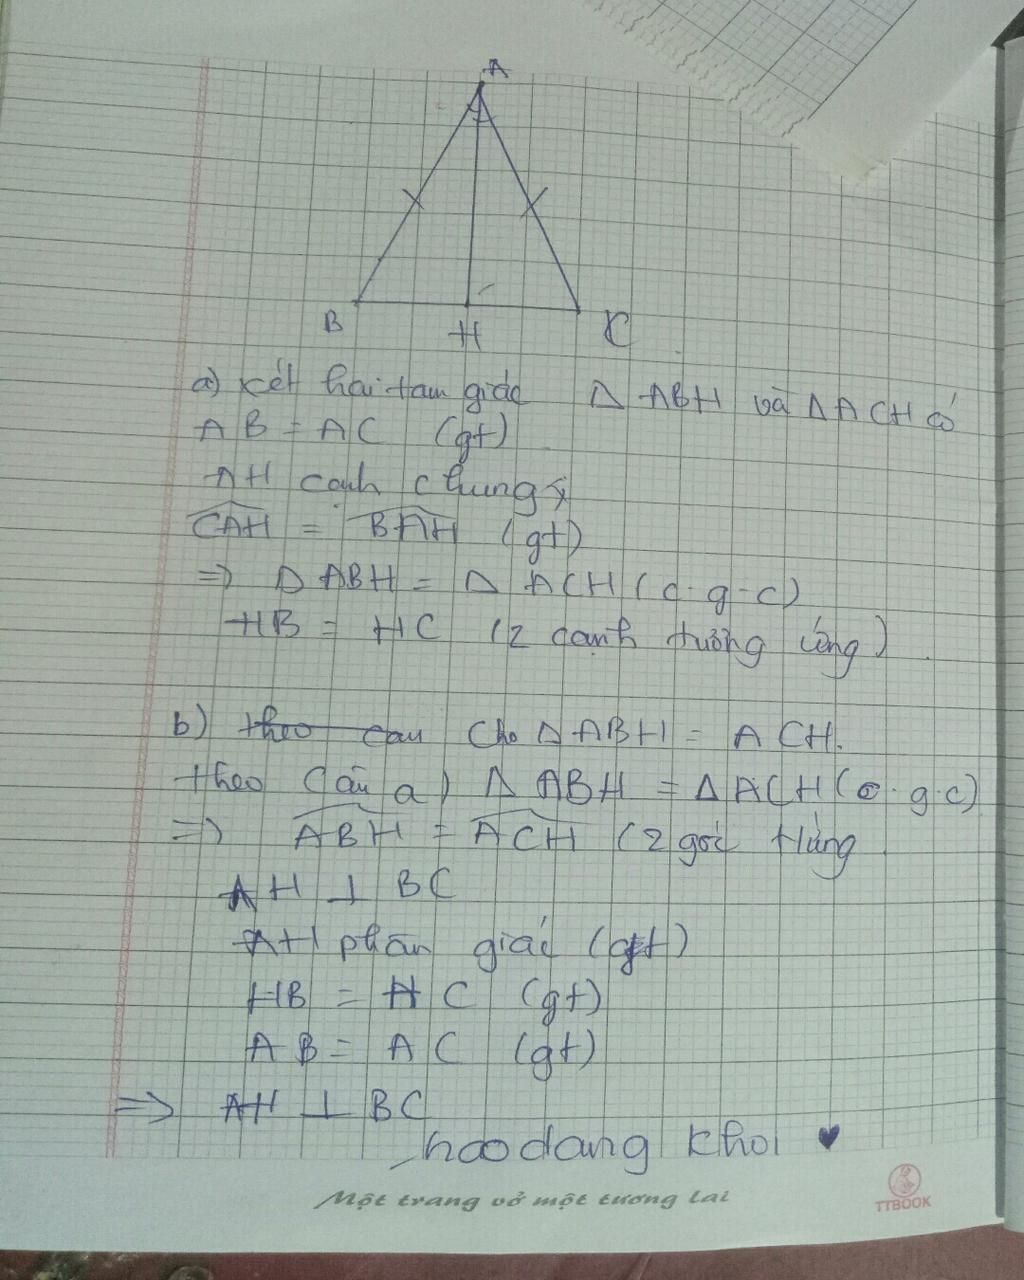 A
B
H
C
a) xét hai tam giác Δ ABH và Δ ACH có
AB = AC (gt)
AH cạnh chung
CAH = BAH (gt)
=> Δ ABH = Δ ACH (c.g.c)
HB = HC (2 cạnh tương ứng)
b) theo cau cho Δ ABH = ACH.
theo câu a) Δ ABH = Δ ACH (c.g.c)
=> ABH = ACH (2 góc tứng
AH ⊥ BC
AH phân giác (gt)
HB = HC (gt)
AB = AC (gt)
=> AH ⊥ BC
haodang khoi ♥
Một trang vở một tương lai
TTBOOK